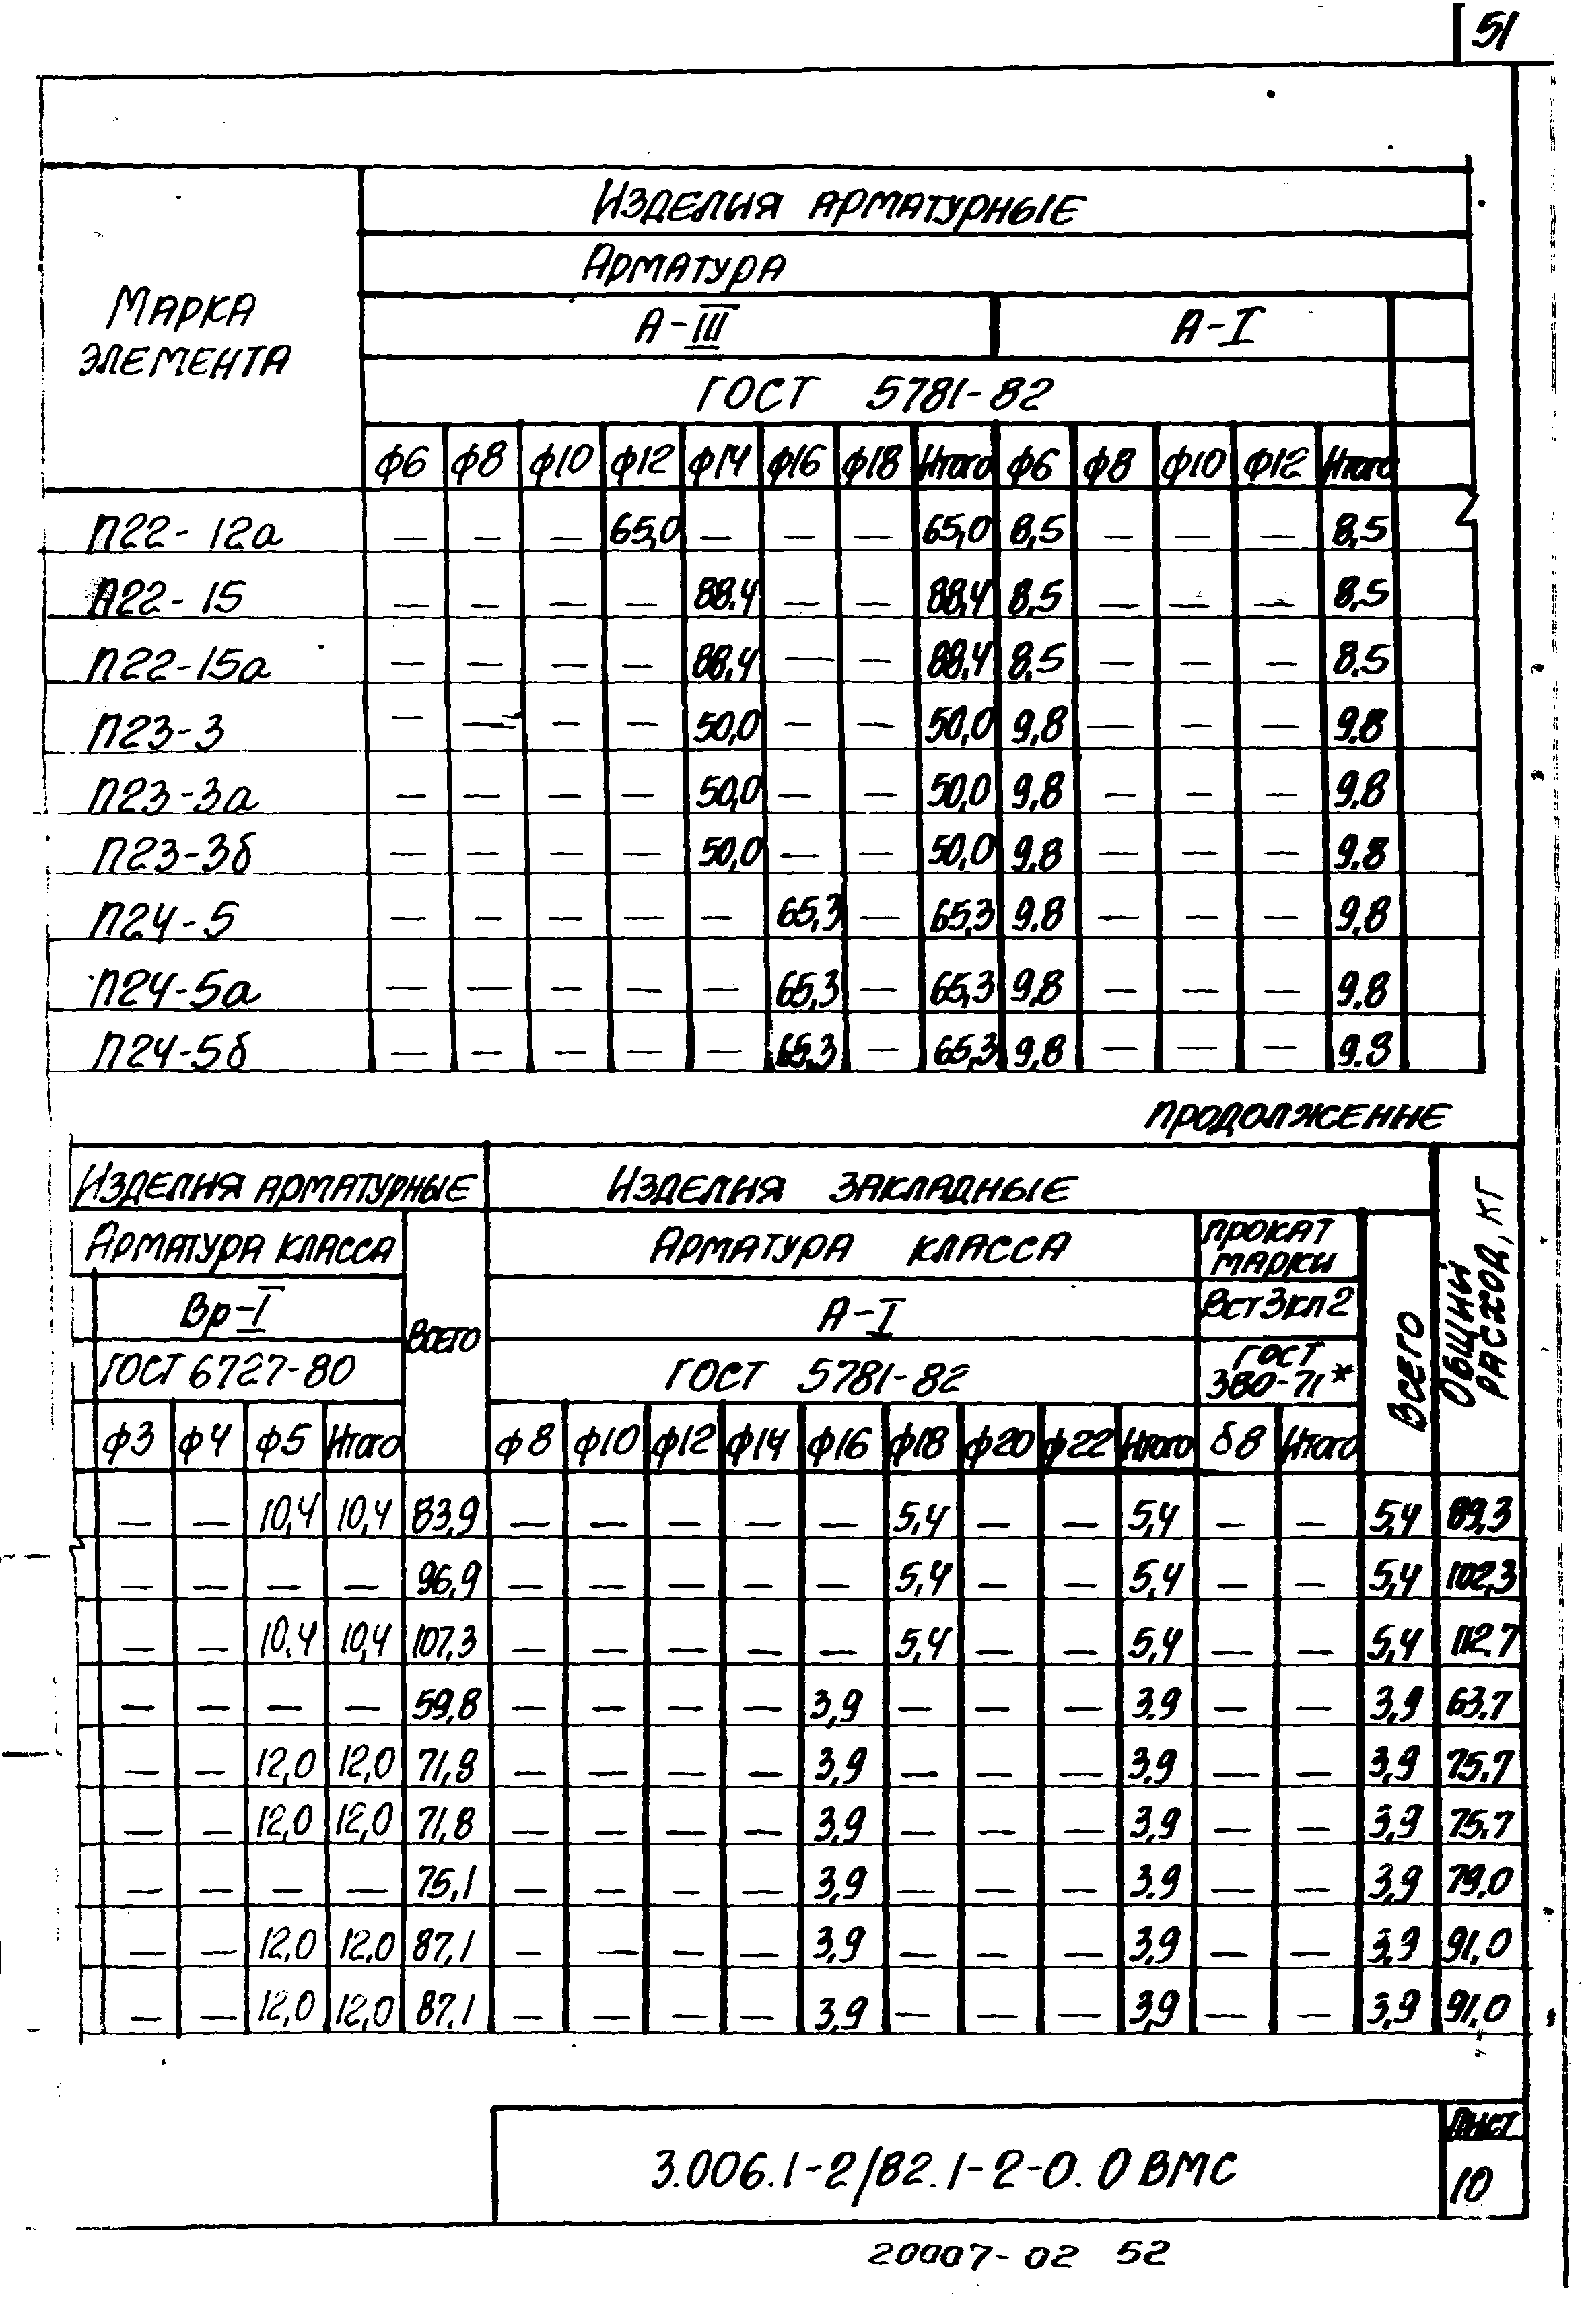 51
Изделия арматурные
Арматура
Марка элемента
А-III А-I
ГОСТ 5781-82
ф6 ф8 ф10 ф12 ф14 ф16 ф18 Итого ф6 ф8 ф10 ф12 Итого
П22-12а — — — 65,0 — — — 65,0 8,5 — — — 8,5
П22-15 — — — — 88.4 — — 88,4 8,5 — — — 8,5
П22-15а — — — — 88,4 — — 88,4 8.5 — — — 8.5
П23-3 — — — — 50,0 — — 50,0 9,8 — — — 9.8
П23-3а — — — — 50,0 — — 50,0 9,8 — — — 9.8
П23-3б — — — — 50,0 — — 50,0 9.8 — — — 9.8
П24-5 — — — — — 65,3 — 65,3 9.8 — — — 9.8
П24-5а — — — — — 65,3 — 65,3 9,8 — — — 9.8
П24-5б — — — — — 65,3 — 65,3 9,8 — — — 9.8
продолжение
Изделия арматурные Изделия закладные Общий расход, кг
Арматура класса Всего Арматура класса Прокат марки Всего
Вр-I А-I Вст3кп2
ГОСТ 6727-80 ГОСТ 5781-82 ГОСТ 380-71*
ф3 ф4 ф5 Итого ф8 ф10 ф12 ф14 ф16 ф18 ф20 ф22 Итого δ8 Итого
— — 10,4 10,4 83,9 — — — — — 5,4 — — 5,4 — — 5,4 89,3
— — — — 96,9 — — — — — 5,4 — — 5,4 — — 5,4 102,3
— — 10.4 10,4 107.3 — — — — — 5,4 — — 5,4 — — 5,4 112.7
— — — — 59,8 — — — — 3,9 — — — 3.9 — — 3,9 63.7
— — 12,0 12,0 71,8 — — — — 3,9 — — — 3.9 — — 3,9 75.7
— — 12,0 12,0 71,8 — — — — 3,9 — — — 3,9 — — 3,9 75.7
— — — — 75,1 — — — — 3,9 — — — 3.9 — — 3,9 79.0
— — 12,0 12,0 87,1 — — — — 3,9 — — — 3,9 — — 3,9 91,0
— — 12,0 12,0 87.1 — — — — 3,9 — — — 3,9 — — 3,9 91.0
3.006.1-2/82.1-2-0.0 ВМС
Лист
10
20007-02 52